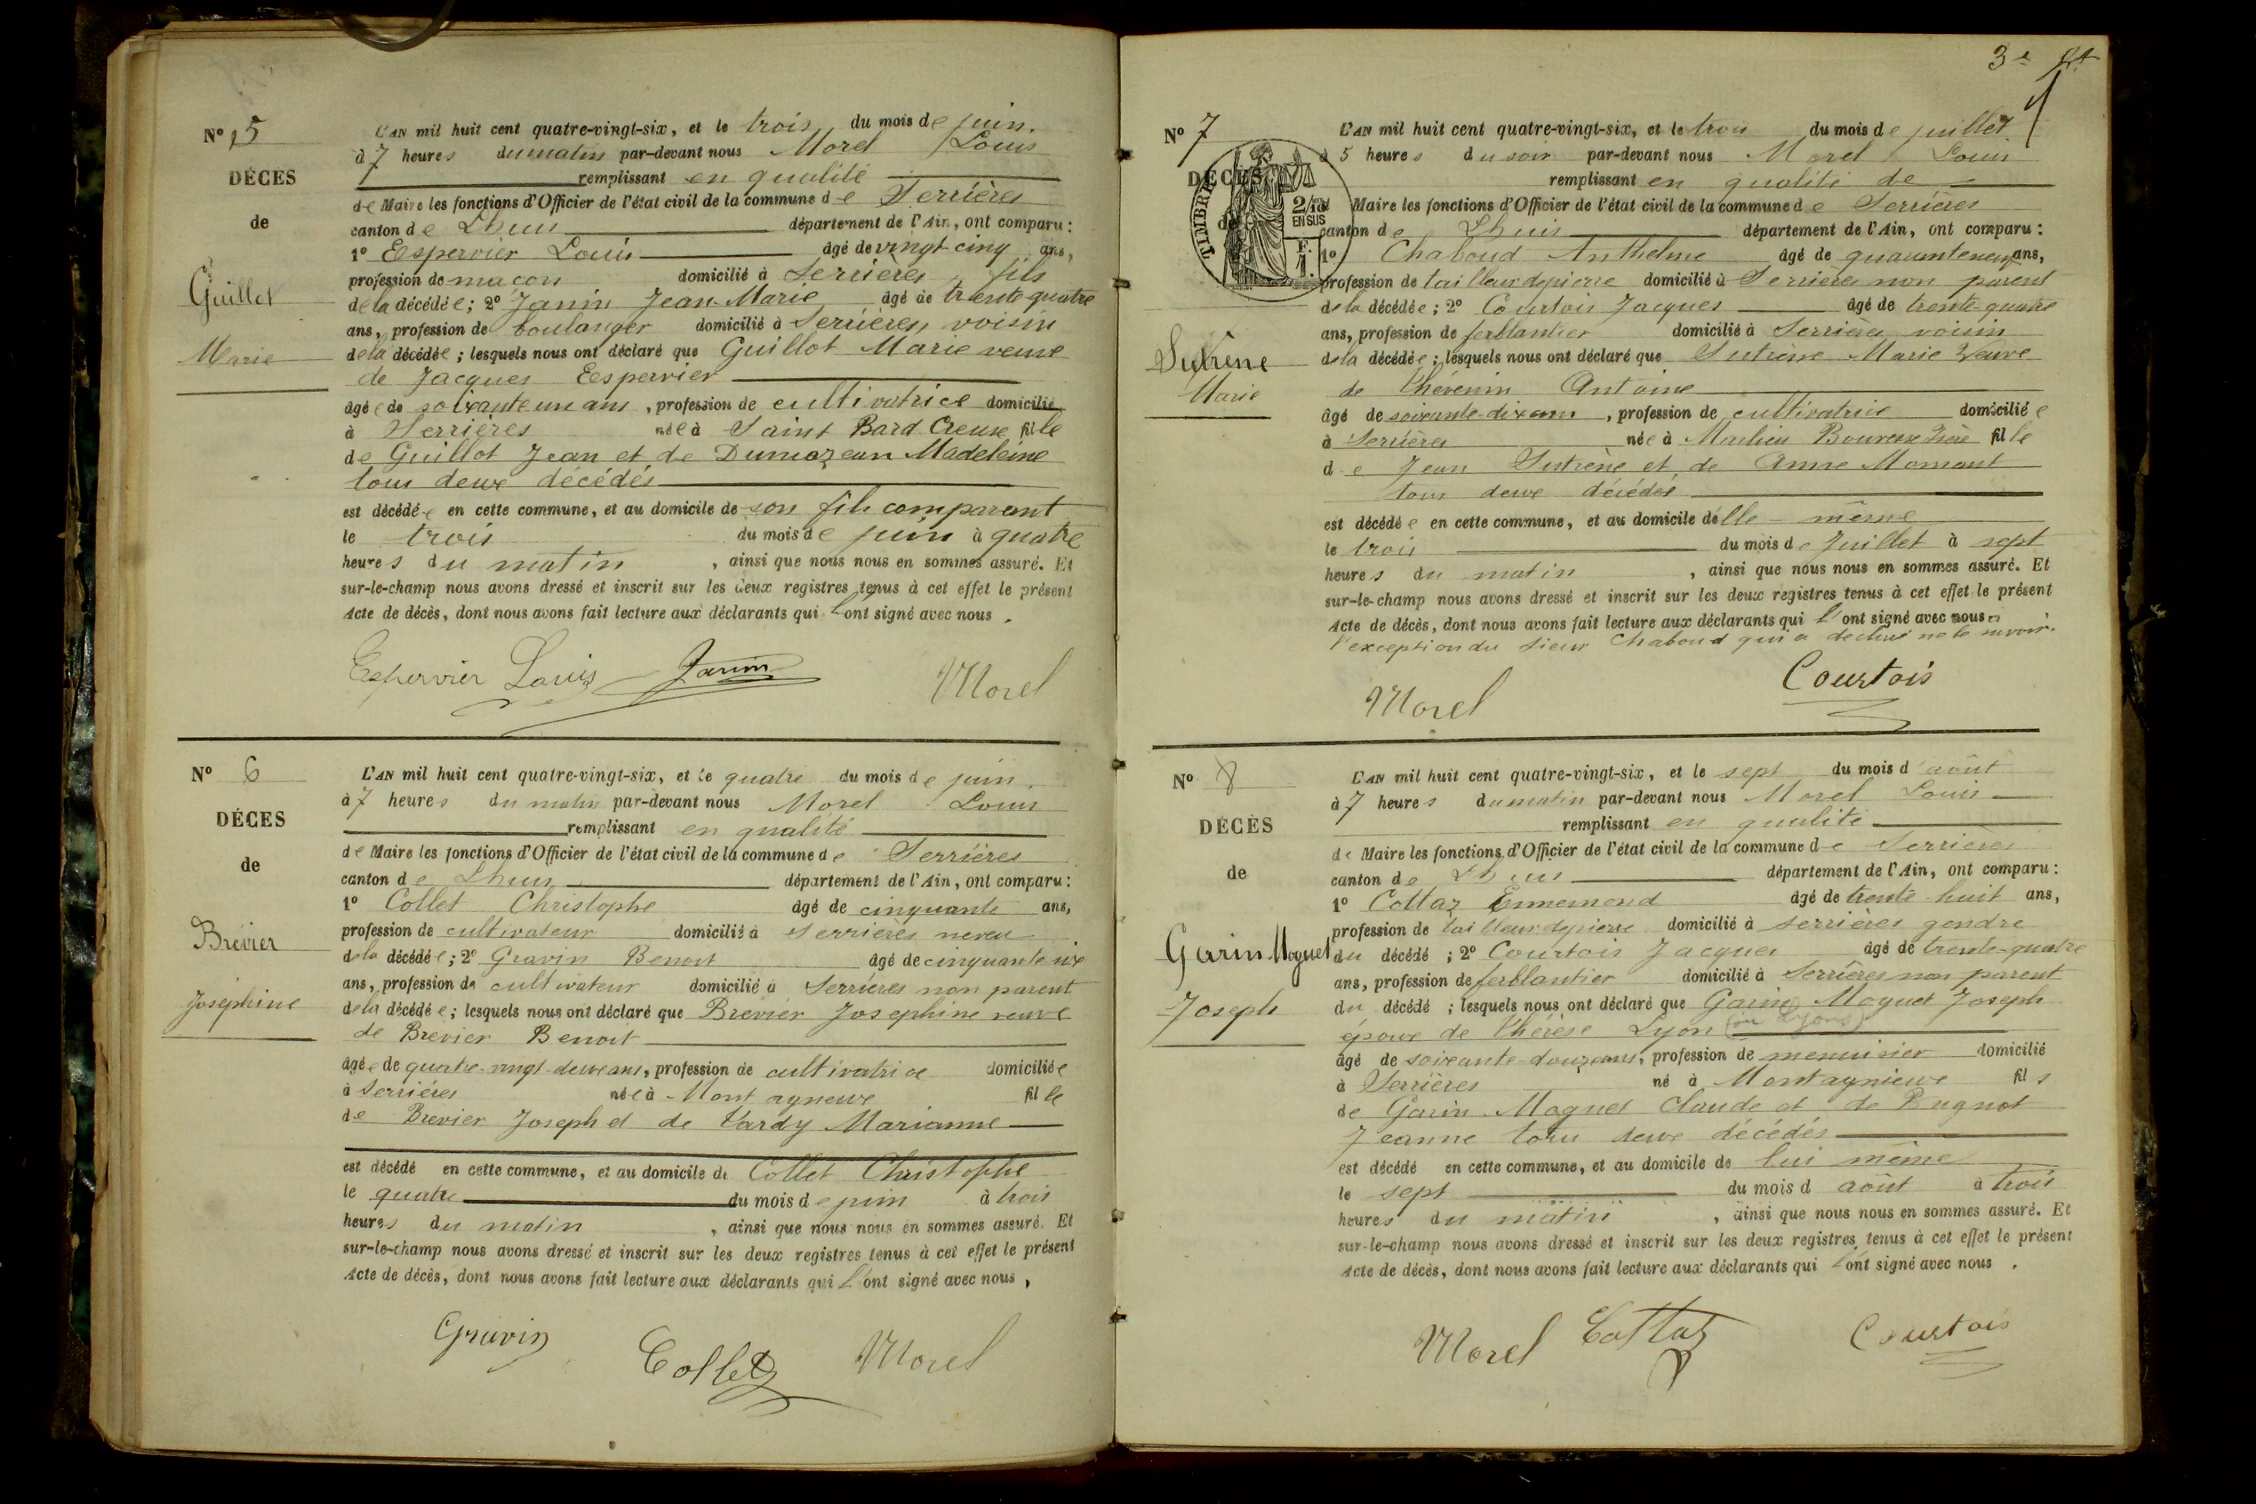 Nº 5
DÉCES
de
Guillot
Marie
L'AN mil huit cent quatre-vingt-six, et le trois du mois de juin.
à 7 heures du matin par-devant nous Morel Louis
remplissant en qualité
de Maire les fonctions d'Officier de l'état civil de la commune de Serrières
canton de Lhuis département de l'Ain, ont comparu :
1º Espervier Louis âgé de vingt cinq ans,
profession de maçon domicilié à Serrières, fils
de la décédée ; 2º Janin Jean-Marie âgé de trente quatre
ans, profession de boulanger domicilié à Serrières, voisin
de la décédée ; lesquels nous ont déclaré que Guillot Marie veuve
de Jacques Espervier
âgée de soixante un ans, profession de cultivatrice domicilié
à Serrières née à Saint Bard Creuse fille
de Guillot Jean et de Dumazeau Madeleine
tous deux décédés
est décédée en cette commune, et au domicile de son fils comparant
le trois du mois de juin à quatre
heures du matin, ainsi que nous nous en sommes assuré. Et
sur-le-champ nous avons dressé et inscrit sur les deux registres tenus à cet effet le présent
Acte de décès, dont nous avons fait lecture aux déclarants qui l'ont signé avec nous.
Espervier Louis Janin Morel
Nº 6
DÉCES
de
Brévier
Joséphine
L'AN mil huit cent quatre-vingt-six, et le quatre du mois de juin.
à 7 heures du matin par-devant nous Morel Louis
remplissant en qualité
de Maire les fonctions d'Officier de l'état civil de la commune de Serrières
canton de Lhuis département de l'Ain, ont comparu :
1º Collet Christophe âgé de cinquante ans,
profession de cultivateur domicilié à Serrières neveu
de la décédée ; 2º Gravin Benoit âgé de cinquante six
ans, profession de cultivateur domicilié à Serrières non parent
de la décédée ; lesquels nous ont déclaré que Brévier Joséphine veuve
de Brevier Benoit
âgée de quatre-vingt-deux ans, profession de cultivatrice domiciliée
à Serrières née à Montagneux fille
de Brevier Joseph et de Tardy Marianne
est décédé en cette commune, et au domicile de Collet Christophe
le quatre du mois de juin à trois
heures du matin, ainsi que nous nous en sommes assuré. Et
sur-le-champ nous avons dressé et inscrit sur les deux registres tenus à cet effet le présent
Acte de décès, dont nous avons fait lecture aux déclarants qui l'ont signé avec nous,
Gravin Collet Morel
3e
Nº 7
DÉCES
de
TIMBRE
2/10 EN SUS
F. 1.
Sutrène
Marie
L'AN mil huit cent quatre-vingt-six, et le trois du mois de juillet
à 5 heures du soir par-devant nous Morel Louis
remplissant en qualité de
Maire les fonctions d'Officier de l'état civil de la commune de Serrières
canton de Lhuis département de l'Ain, ont comparu :
1º Chaboud Anthelme âgé de quarante neuf ans,
profession de tailleur de pierre domicilié à Serrières non parent
de la décédée ; 2º Courtois Jacques âgé de trente-quatre
ans, profession de ferblantier domicilié à Serrières, voisin
de la décédée ; lesquels nous ont déclaré que Sutrène Marie Veuve
de Thévenin Antoine
âgé de soixante-dix ans, profession de cultivatrice domiciliée
à Serrières née à Isère fille
de Jean Sutrène et de Anne Momont
tous deux décédés
est décédée en cette commune, et au domicile d'elle même
le trois du mois de Juillet à sept
heures du matin, ainsi que nous nous en sommes assuré. Et
sur-le-champ nous avons dressé et inscrit sur les deux registres tenus à cet effet le présent
Acte de décès, dont nous avons fait lecture aux déclarants qui l'ont signé avec nous à
l'exception du sieur Chaboud qui a déclaré ne le savoir.
Morel Courtois
Nº 8
DÉCÈS
de
Garin Moguet
Joseph
L'AN mil huit cent quatre-vingt-six, et le sept du mois d'août
à 7 heures du matin par-devant nous Morel Louis
remplissant en qualité
de Maire les fonctions d'Officier de l'état civil de la commune de Serrières
canton de Lhuis département de l'Ain, ont comparu :
1º Cottaz Ennemond âgé de trente-huit ans,
profession de tailleur de pierre domicilié à Serrières gendre
du décédé ; 2º Courtois Jacques âgé de trente-quatre
ans, profession de ferblantier domicilié à Serrières non parent
du décédé ; lesquels nous ont déclaré que Garin Moguet Joseph
époux de Thérèse Lyon (ou Lyons)
âgé de soixante-douze ans, profession de menuisier domicilié
à Serrières né à Montagnieux fils
de Garin Moguet Claude et de Pugnot
Jeanne tous deux décédés
est décédé en cette commune, et au domicile de lui même
le sept du mois d août à trois
heures du matin, ainsi que nous nous en sommes assuré. Et
sur-le-champ nous avons dressé et inscrit sur les deux registres tenus à cet effet le présent
Acte de décès, dont nous avons fait lecture aux déclarants qui l'ont signé avec nous.
Morel Cottaz Courtois